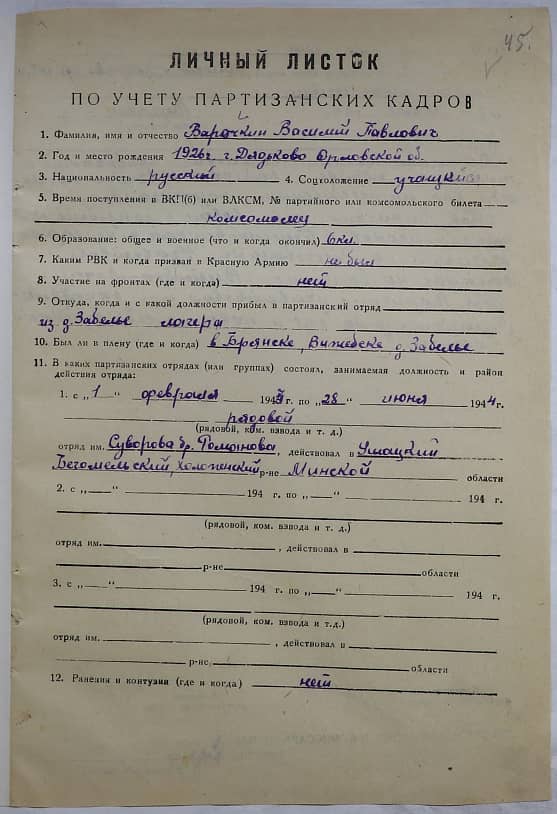 45.
ЛИЧНЫЙ ЛИСТОК
ПО УЧЕТУ ПАРТИЗАНСКИХ КАДРОВ
1. Фамилия, имя и отчество Варочкин Василий Павлович
2. Год и место рождения 1926г. г. Дядьково Орловской об.
3. Национальность русский 4. Соцположение учащийся
5. Время поступления в ВКП(б) или ВЛКСМ, № партийного или комсомольского билета
комсомолец
6. Образование: общее и военное (что и когда окончил) 6 кл.
7. Каким РВК и когда призван в Красную Армию не был
8. Участие на фронтах (где и когда) нет
9. Откуда, когда и с какой должности прибыл в партизанский отряд
из д. Забелье лагеря
10. Был ли в плену (где и когда) в Брянске, Витебске д. Забелье
11. В каких партизанских отрядах (или группах) состоял, занимаемая должность и район
действия отряда:
1. с „1“ февраля 1943 г. по „28“ июня 1944 г.
рядовой
(рядовой, ком. взвода и т. д.)
отряд им. Суворова бр. Романова, действовал в Ушацкий
Бегомльский, Холопенский р-не Минской области
2. с „ “ 194 г. по „ “ 194 г.
(рядовой, ком. взвода и т. д.)
отряд им. , действовал в
р-не области
3. с „ “ 194 г. по „ “ 194 г.
(рядовой, ком. взвода и т.д.)
отряд им. , действовал в
р-не области
12. Ранения и контузии (где и когда) нет